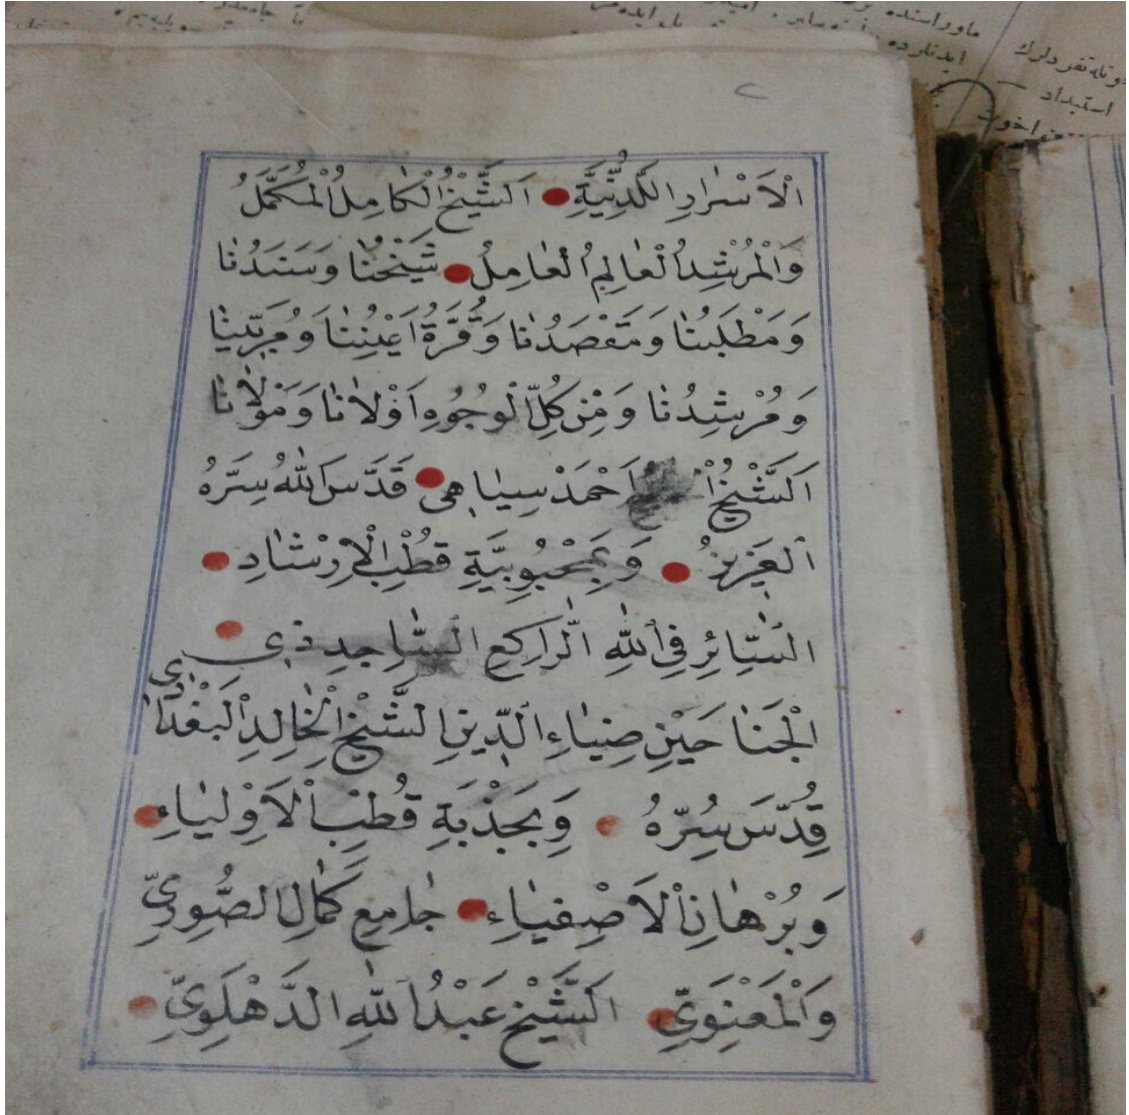 ماوراسنده
ايدنلرده
استبداد
٢
اَلْاَسْرَارِ اللَّدُنِّيَّةِ اَلشَّيْخُ الْكَامِلُ الْمُكَمَّلُ
وَالْمُرْشِدُ الْعَالِمُ الْعَامِلُ شَيْخُنَا وَسَنَدُنَا
وَمَطْلَبُنَا وَمَقْصَدُنَا وَقُرَّةُ اَعْيُنِنَا وَمُرَبِّينَا
وَمُرْشِدُنَا وَمِنْ كُلِّ الْوُجُوهِ اَوْلَانَا وَمَوْلَانَا
اَلشَّيْخُ اَحْمَدْ سِيَاهِى قَدَّسَ اللّٰهُ سِرَّهُ
الْعَزِيزُ وَبِمَحْبُوبِيَّةِ قُطْبِ الْاِرْشَادِ
السَّائِرِ فِى اللّٰهِ الرَّاكِعِ السَّاجِدِ ذِى
الْجَنَاحَيْنِ ضِيَاءِ الدِّينِ الشَّيْخِ الْخَالِدِ الْبَغْدَادِى
قُدِّسَ سُِرّهُ وَبِجَذْبَةِ قُطْبِ الْاَوْلِيَاءِ
وَبُرْهَانِ الْاَصْفِيَاءِ جَامِعِ كَمَالِ الصُّورِىِّ
وَالْمَعْنَوِىِّ اَلشَّيْخِ عَبْدُ اللّٰهِ الدَّهْلَوِىِّ